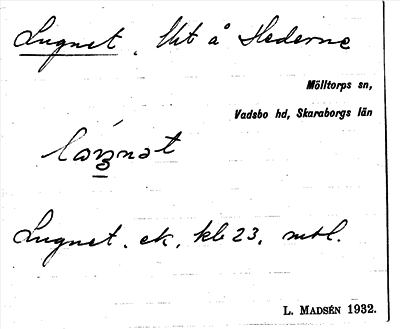 Lugnet, Utt å Hederne
Mölltorps sn,
Vadsbo hd, Skaraborgs län
Lugnet. ek. kb 23. mtl.
L. MADSÉN 1932.